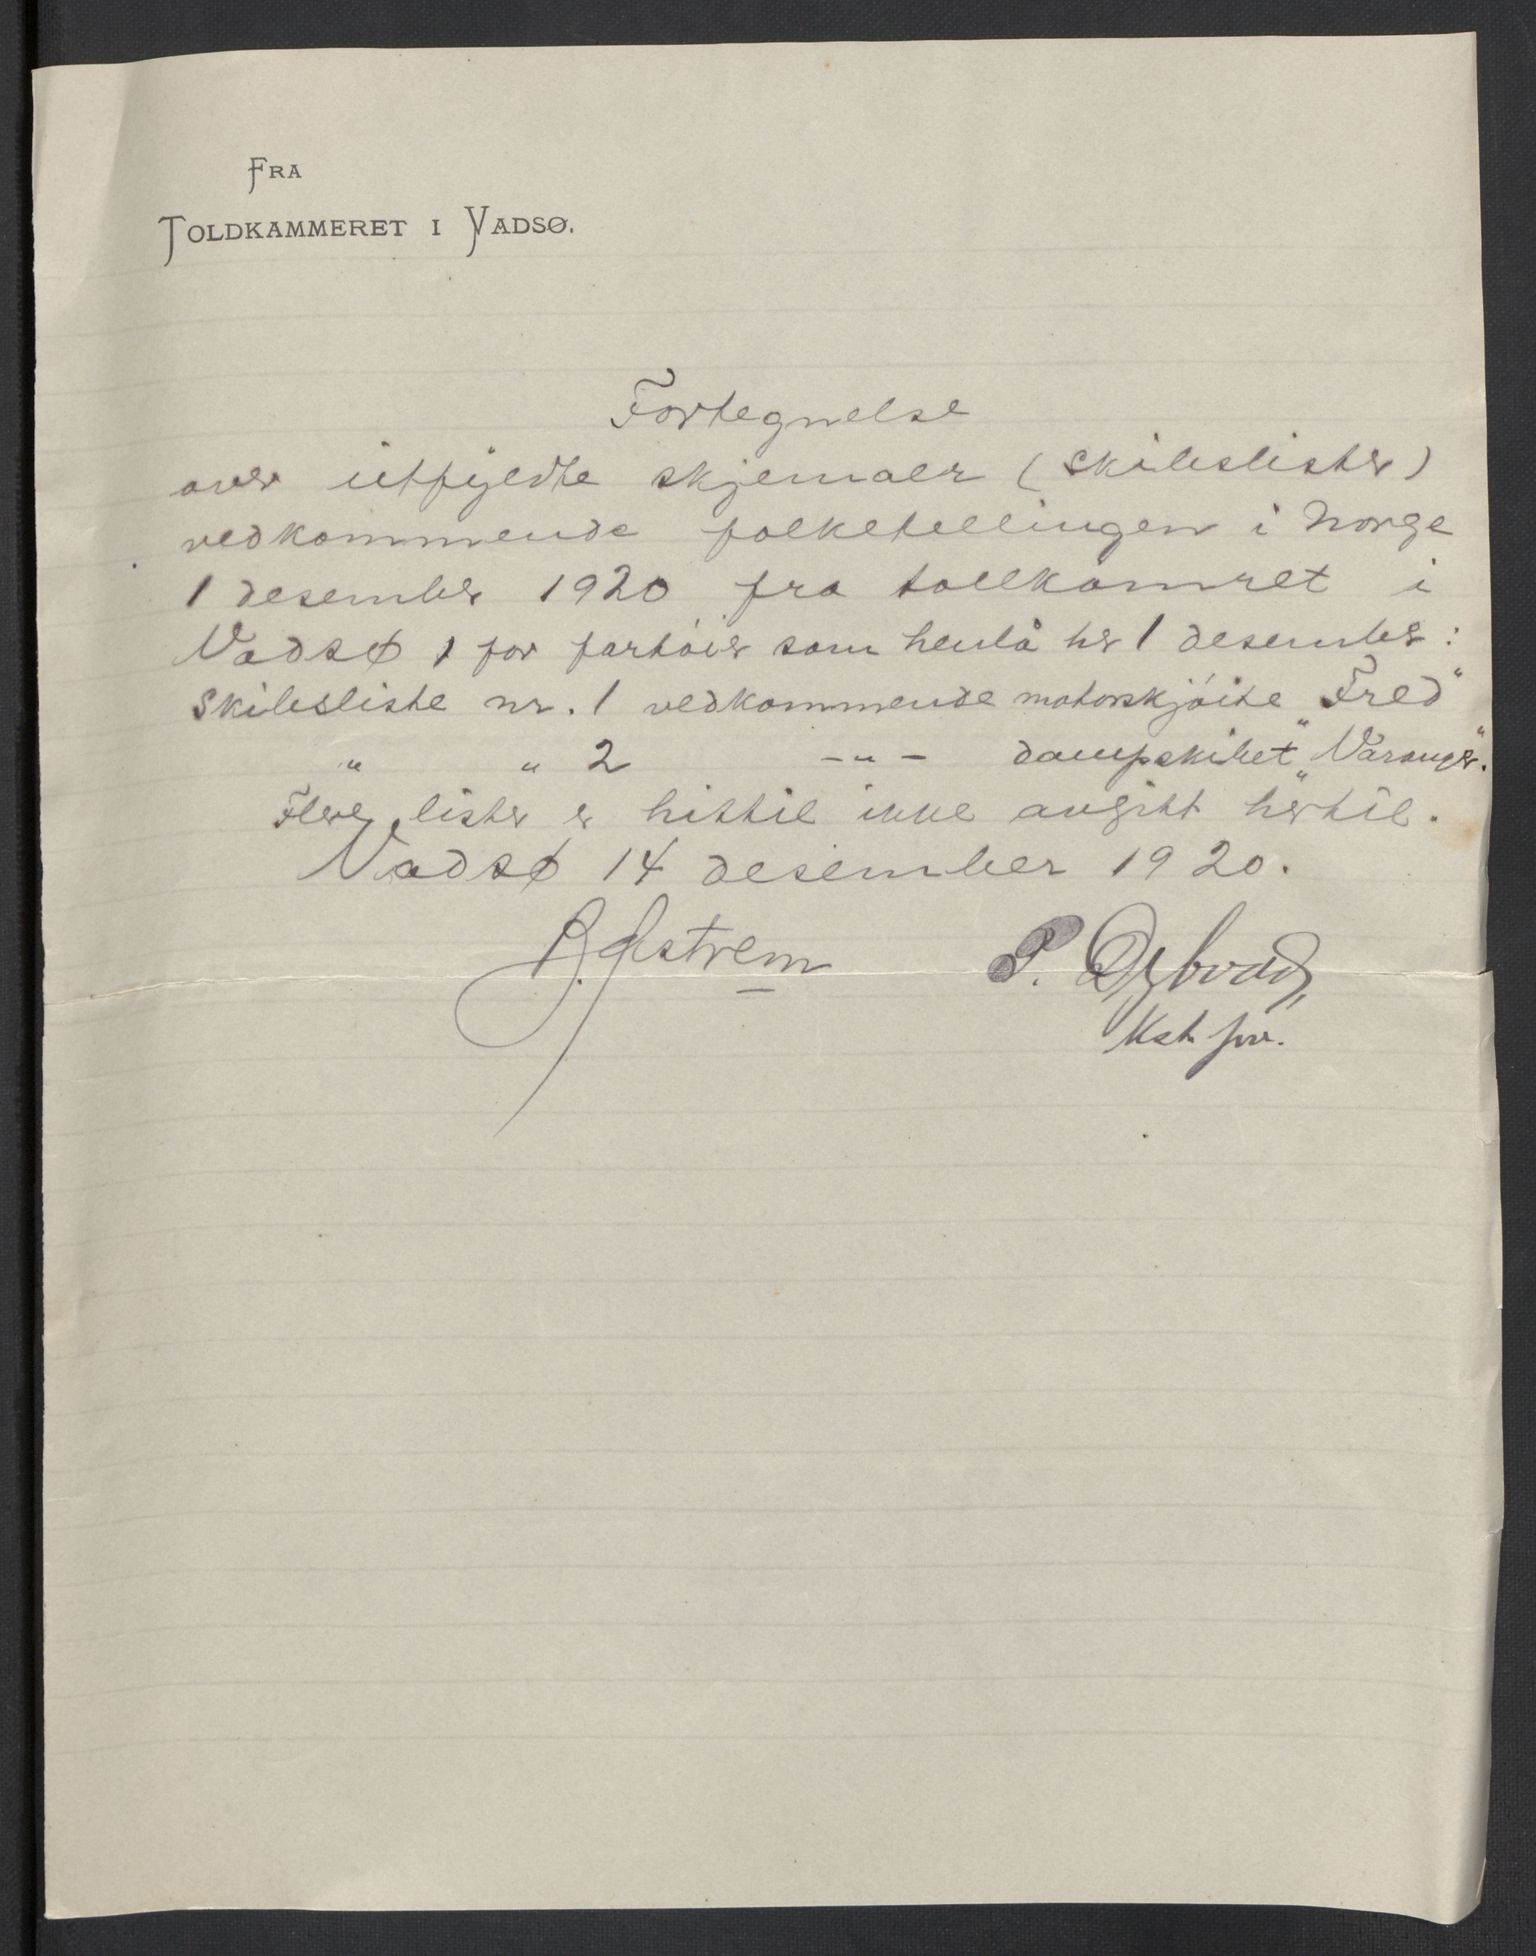 FRA
TOLDKAMMERET I VADSØ.
Fortegnelse
over utfyldte skjemaer (skibslister)
vedkommende folketellingen i Norge
1 desember 1920 fra tollkamret i
Vadsø, for fartøier som henlå her 1 desember:
Skibsliste nr. 1 vedkommende motorskjøite "Fred"
" " 2 -"- dampskibet "Varanger".
Flere lister er hittil ikke avgitt hertil.
Vadsø 14 desember 1920.
P. Dybvad,
Kst. for.